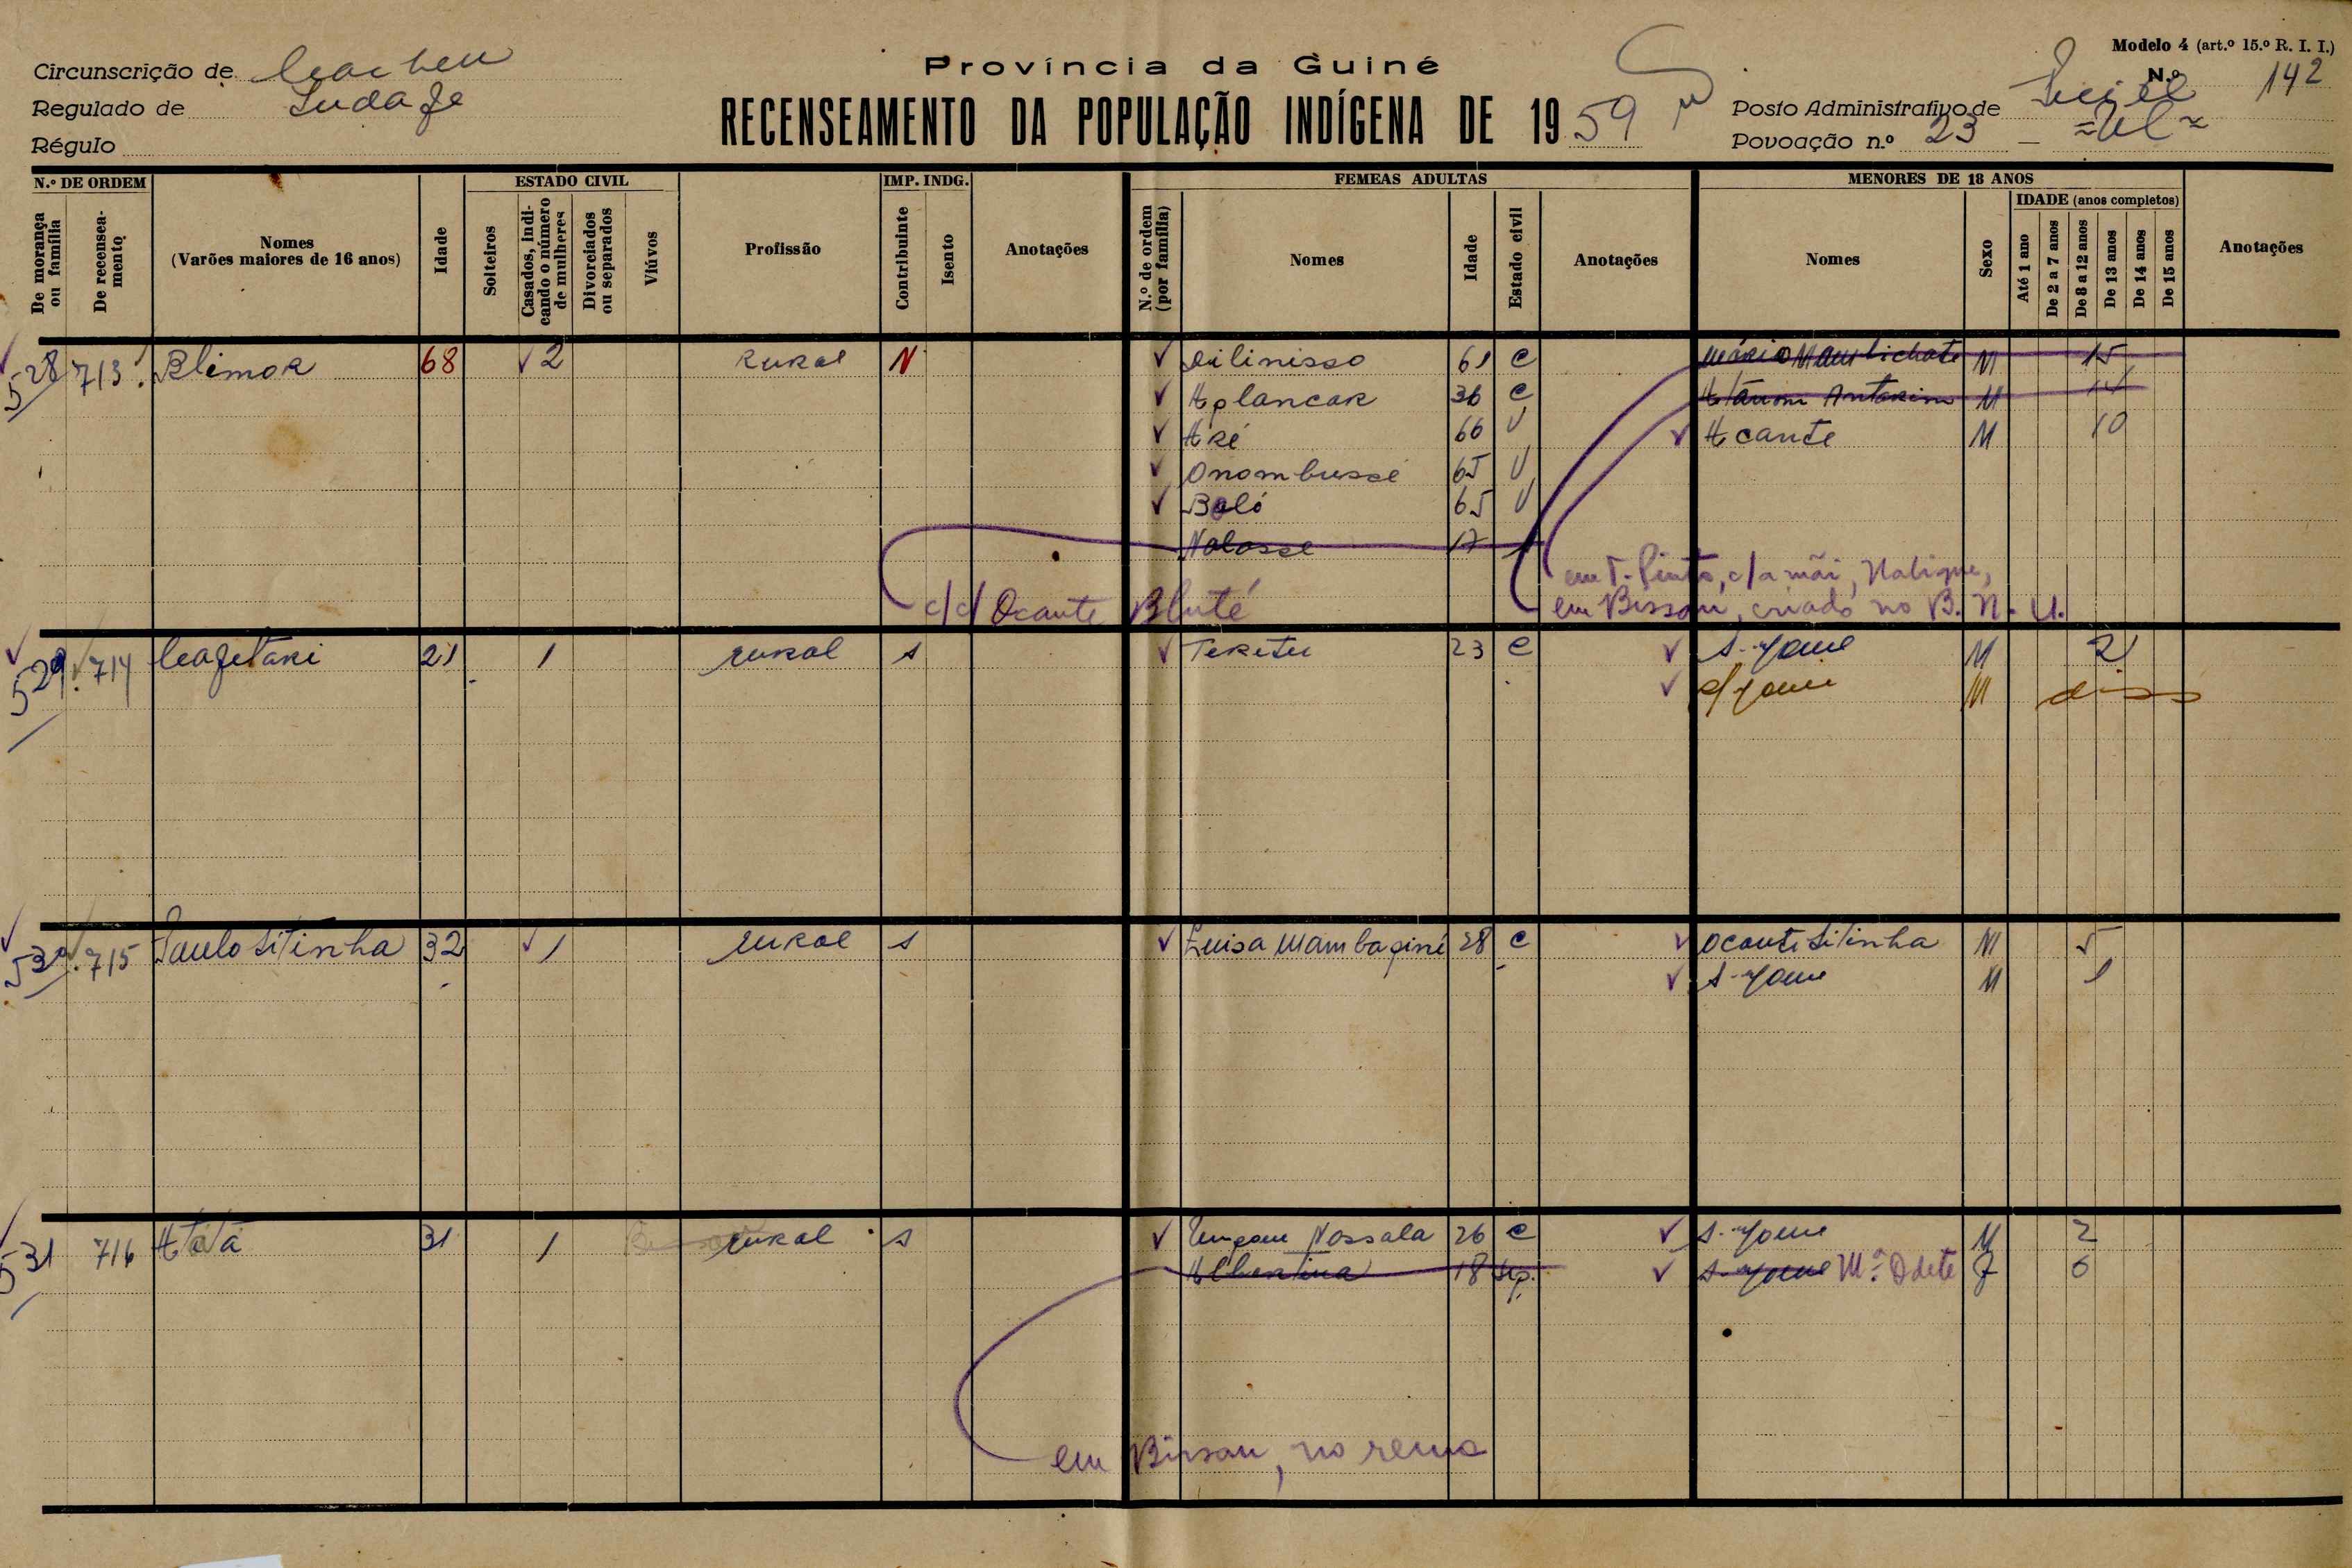 Modelo 4 (art.º 15.º R. I. I.)
Província da Guiné
N.º 142
Circunscrição de Cacheu
Regulado de
Régulo
RECENSEAMENTO DA POPULAÇÃO INDÍGENA DE 1959
Posto Administrativo de
Povoação n.º 23
N.º DE ORDEM
De morança ou família
De recenseamento
Nomes
(Varões maiores de 16 anos)
Idade
ESTADO CIVIL
Solteiros
Casados, indicando o número de mulheres
Divorciados ou separados
Viúvos
Profissão
IMP. INDG.
Contribuinte
Isento
Anotações
FEMEAS ADULTAS
N.º de ordem (por família)
Nomes
Idade
Estado civil
Anotações
MENORES DE 18 ANOS
Nomes
Sexo
IDADE (anos completos)
Até 1 ano
De 2 a 7 anos
De 8 a 12 anos
De 13 anos
De 14 anos
De 15 anos
Anotações
528 713 Blimor 68 2 Rural N Dilinisso 61 C M 15
36 C M 14
66 V M 10
Onombussé 65 V
Baló 65 V
Nolosse 17
c/c/ Ocante Bluté
em T. Pinto, c/a mãi,
em Bissau, criado no B. N. U.
529 714 21 1 rural s Teketu 23 C s. nome M 2
s/ nome M dias
530 715 Paulo Sitinha 32 1 rural s Luisa 28 C Ocante Sitinha M 5
s. nome M 1
531 716 31 1 rural s Nossala 26 C s. nome M 2
Albertina 18 sep. s. nome M.ª Odete F 6
em Bissau, no remo